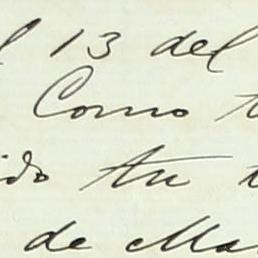 l 13 del
Como t
ido tu t
de Ma